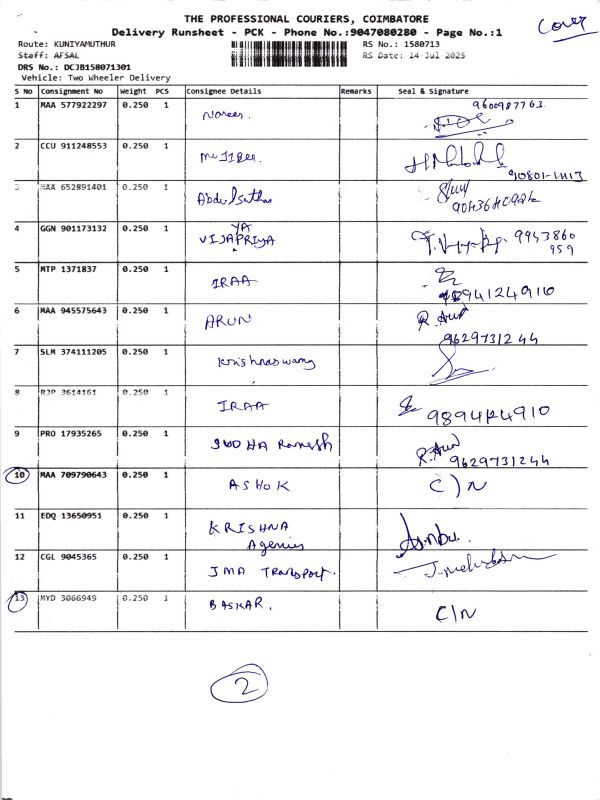 THE PROFESSIONAL COURIERS, COIMBATORE
Cover
Delivery Runsheet - PCK - Phone No.:9047080280 - Page No.:1
Route: KUNIYAMUTHUR
RS No.: 1580713
Staff: AFSAL
RS Date: 14-Jul-2025
DRS No.: DCJB158071301
Vehicle: Two Wheeler Delivery
S No Consignment No Weight PCS Consignee Details Remarks Seal & Signature
1 MAA 577922297 0.250 1 9600987763
2 CCU 911248553 0.250 1
3 MAA 652891401 0.250 1 Abdul Sathar
4 GGN 901173132 0.250 1 VIJAYAPRIYA 9943860
959
5 MTP 1371837 0.250 1 IRAA
9894124910
6 MAA 945575643 0.250 1 ARUN R. Arun
9629731244
7 SLM 374111205 0.250 1 Krishnaswamy
8 RJP 3614161 0.250 1 IRAA 9894124910
9 PRO 17935265 0.250 1 SUDHA Ramesh R. Arun
9629731244
10 MAA 709790643 0.250 1 ASHOK C/N
11 EDQ 13650951 0.250 1 KRISHNA
Agencies
12 CGL 9045365 0.250 1 JMA TRANSPORT
13 MYD 3066949 0.250 1 BASKAR. C/N
2